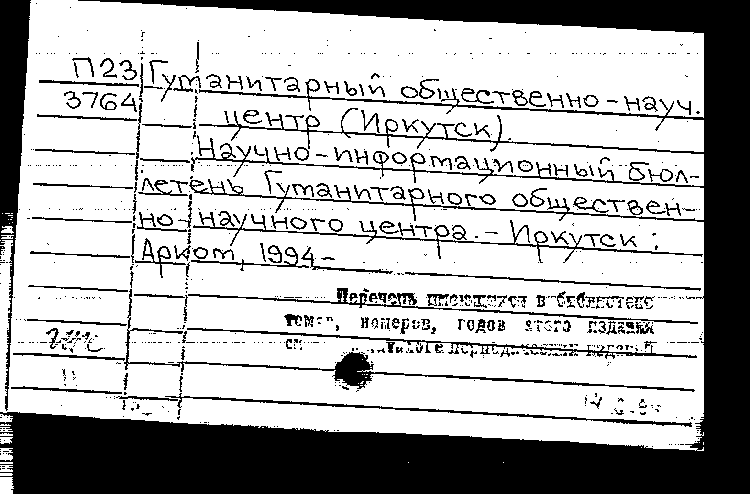 П23 Гуманитарный общественно-науч.
3764 центр (Иркутск).
Научно-информационный бюл-
летень Гуманитарного обществен-
но-научного центра. - Иркутск :
Арком, 1994-
Перечень имеющихся в библиотеке
томов, номеров, годов этого издания
см. каталоге периодических изданий